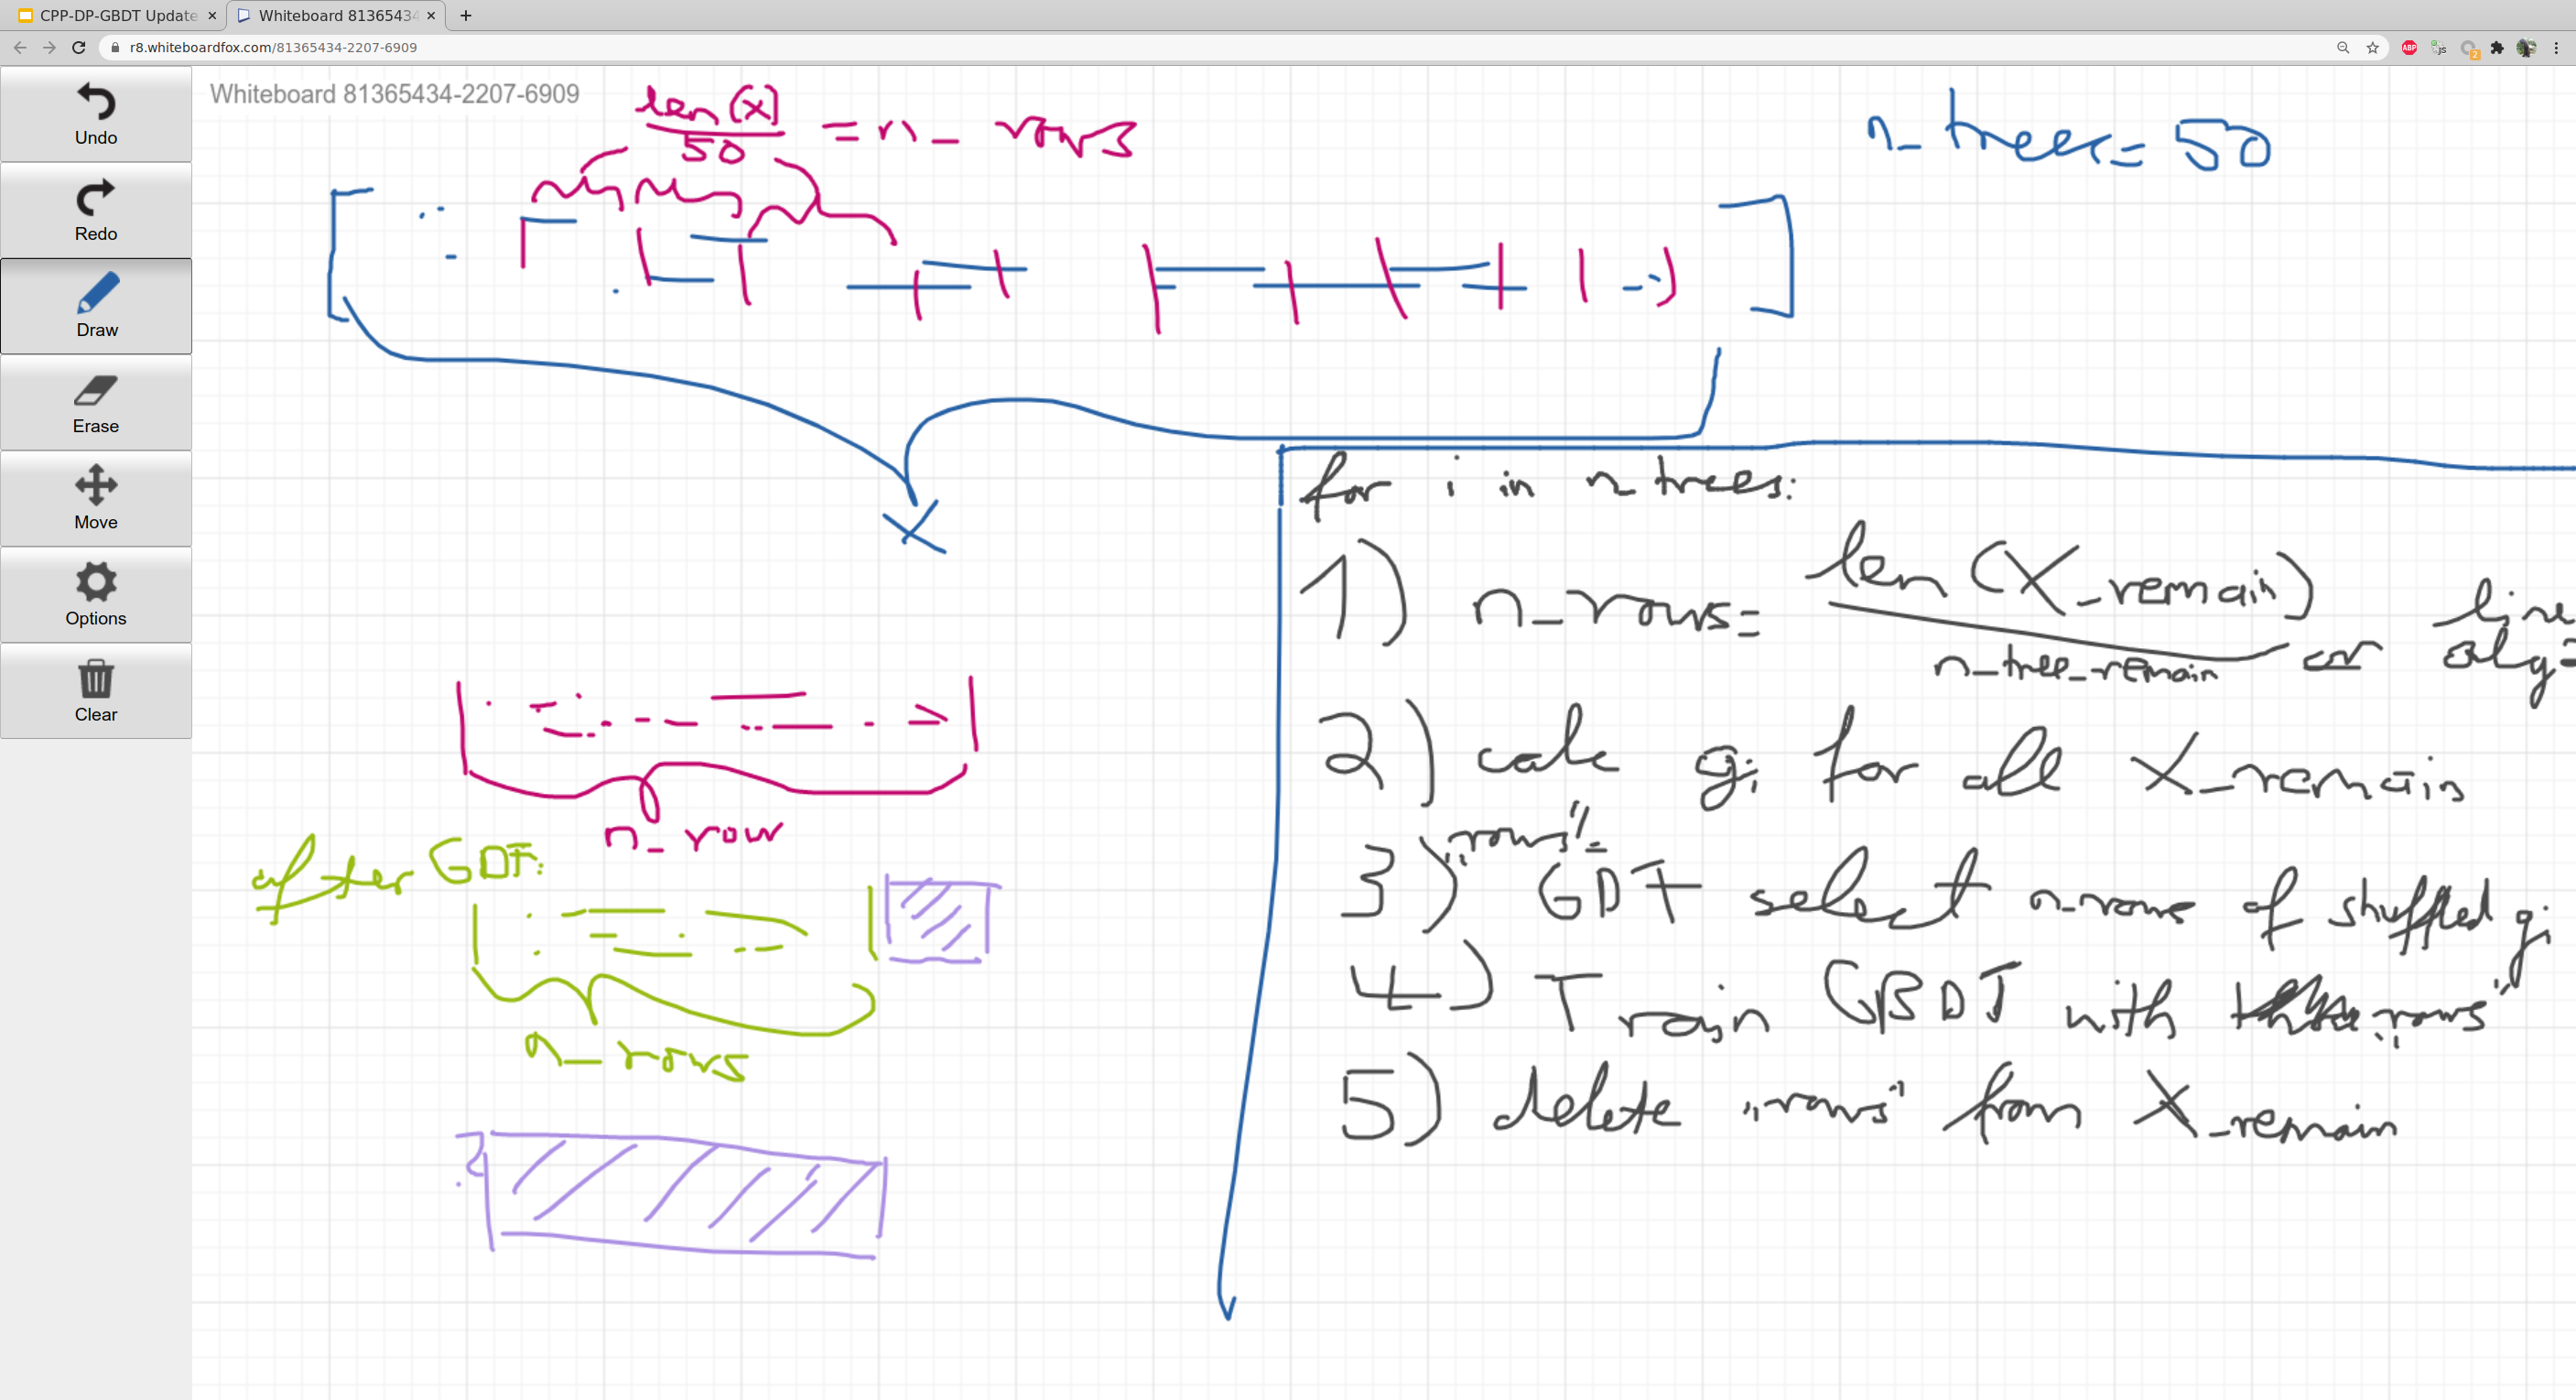 CPP-DP-GBDT Update
Whiteboard 8136543
r8.whiteboardfox.com/81365434-2207-6909
ABP
2
Undo
Redo
Draw
Erase
Move
Options
Clear
Whiteboard 81365434-2207-6909
len(x)
50
= n_ rows
n_trees = 50
X
for i in n_trees:
1) n_rows = len(X_remain)
n_tree_remain or
2) calc gi for all X_remain
3) "rows" = GDT select n_rows of shuffled gi
4) Train GBDT with "rows"
5) delete "rows" from X_remain
n_row
after GDF:
n_rows